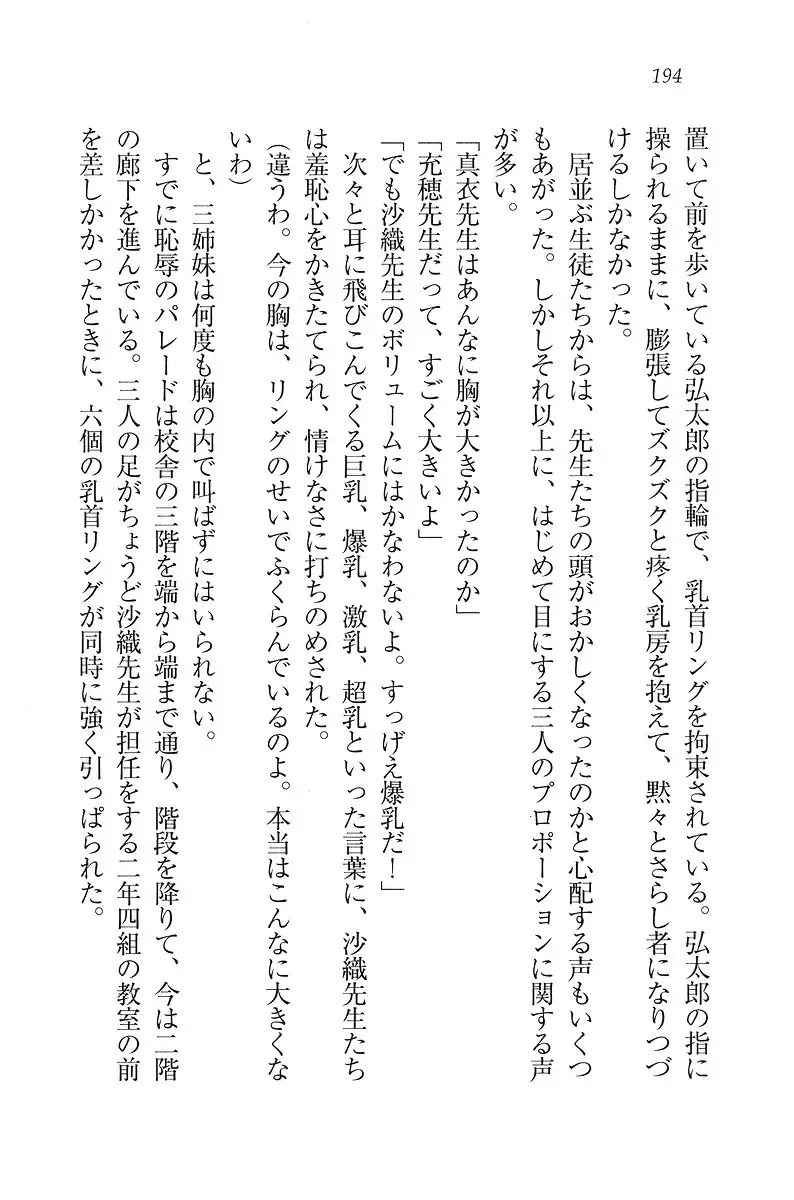 194
置いて前を歩いている弘太郎の指輪で、乳首リングを拘束されている。弘太郎の指に
操られるままに、膨張してズクズクと疼く乳房を抱えて、黙々とさらし者になりつづ
けるしかなかった。
居並ぶ生徒たちからは、先生たちの頭がおかしくなったのかと心配する声もいくつ
もあがった。しかしそれ以上に、はじめて目にする三人のプロポーションに関する声
が多い。
「真衣先生はあんなに胸が大きかったのか」
「充穂先生だって、すごく大きいよ」
「でも沙織先生のボリュームにはかなわないよ。すっげえ爆乳だ！」
次々と耳に飛びこんでくる巨乳、爆乳、激乳、超乳といった言葉に、沙織先生たち
は羞恥心をかきたてられ、情けなさに打ちのめされた。
（違うわ。今の胸は、リングのせいでふくらんでいるのよ。本当はこんなに大きくな
いわ）
と、三姉妹は何度も胸の内で叫ばずにはいられない。
すでに恥辱のパレードは校舎の三階を端から端まで通り、階段を降りて、今は二階
の廊下を進んでいる。三人の足がちょうど沙織先生が担任をする二年四組の教室の前
を差しかかったときに、六個の乳首リングが同時に強く引っぱられた。